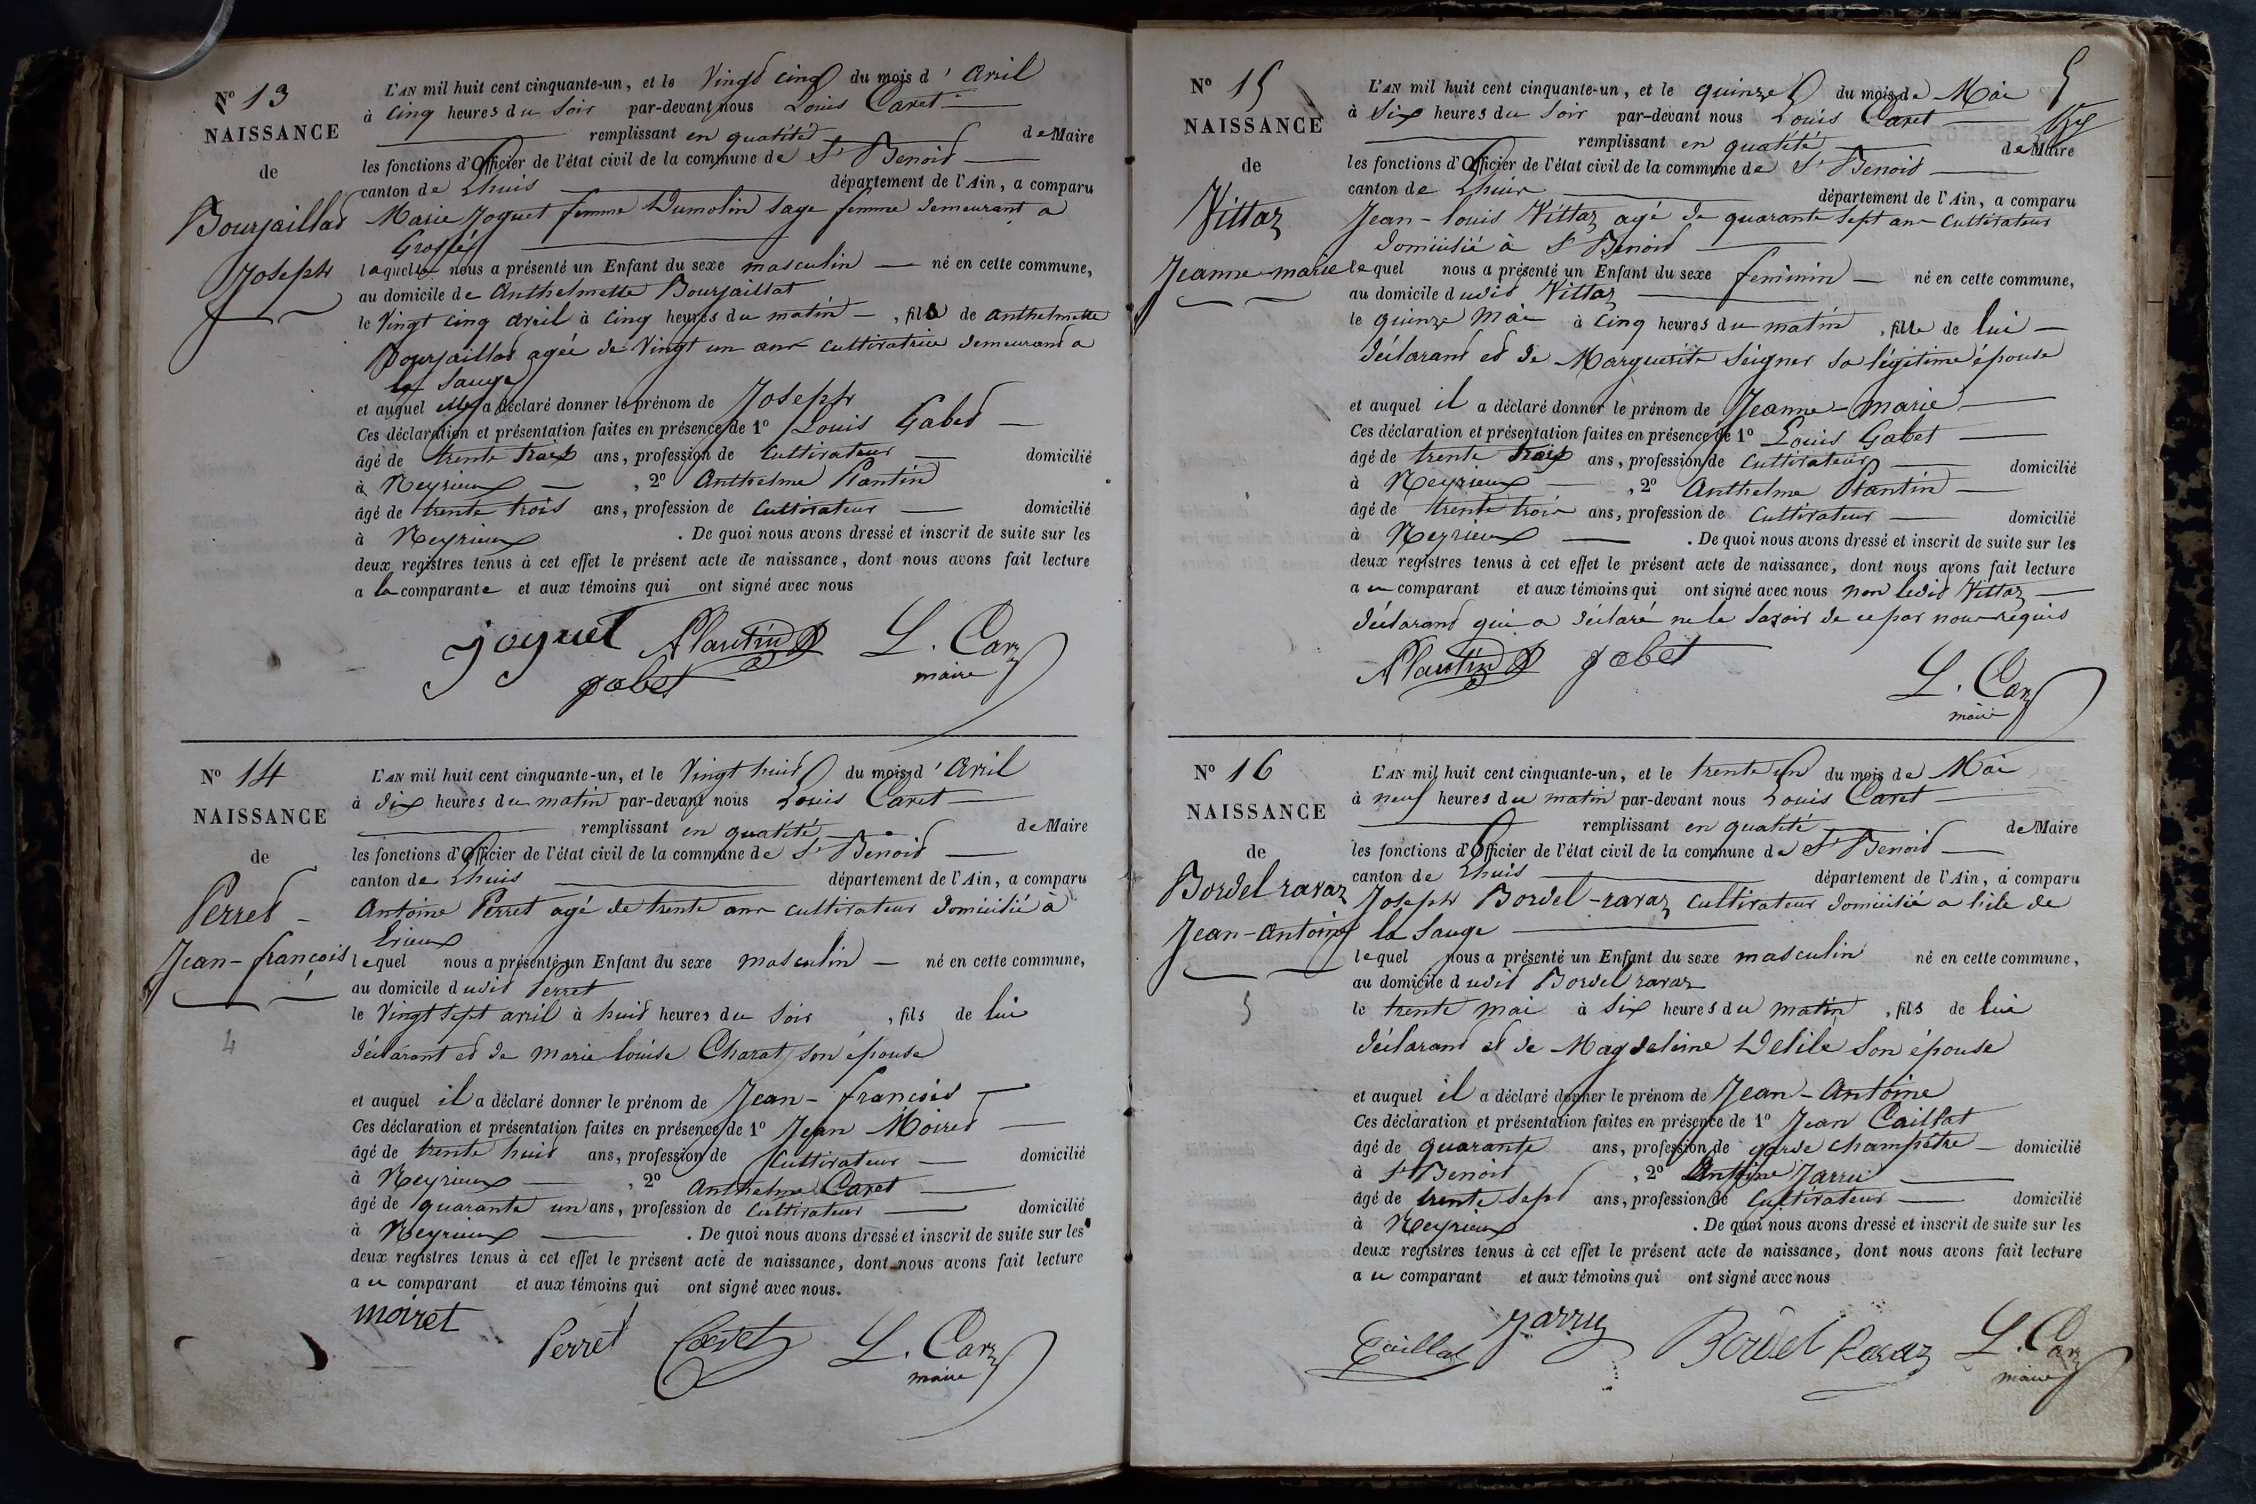 N° 13
NAISSANCE
de
Bourjaillad
Joseph
L'AN mil huit cent cinquante-un, et le Vingt cinq du mois d' avril
à Cinq heures du Soir par-devant nous Louis Caret
remplissant en qualité de Maire
les fonctions d'Officier de l'état civil de la commune de St Benoid
canton de Lhuis département de l'Ain, a comparu
Marie Joguet femme Dumolin sage femme demeurant a
Groslée
laquelle nous a présenté un Enfant du sexe masculin né en cette commune,
au domicile de Anthelmette Bourjaillat
le Vingt cinq avril à Cinq heures du matin, fils de anthelmette
Bourjaillad agée de Vingt un ans cultivatrice demeurand a
la Sauge
et auquel elle a déclaré donner le prénom de Joseph
Ces déclaration et présentation faites en présence de 1° Louis Gabed
âgé de trente trois ans, profession de Cultivateur domicilié
à Neyrieux, 2° Anthelme Plantin
âgé de trente trois ans, profession de Cultivateur domicilié
à Neyrieux. De quoi nous avons dressé et inscrit de suite sur les
deux registres tenus à cet effet le présent acte de naissance, dont nous avons fait lecture
a la comparante et aux témoins qui ont signé avec nous
joguet APlantin L. Caret
gabet maire
N° 14
NAISSANCE
de
Perred
Jean-françois
4
L'AN mil huit cent cinquante-un, et le Vingt huid du mois d' Avril
à dix heures du matin par-devant nous Louis Caret
remplissant en qualité de Maire
les fonctions d'Officier de l'état civil de la commune de St Benoid
canton de Lhuis département de l'Ain, a comparu
Antoine Perret agé de trente ans cultivateur domicilié à
Erieux
lequel nous a présenté un Enfant du sexe masculin né en cette commune,
au domicile dudid Perret
le Vingt sept avril à huid heures du Soir, fils de lui
déclarant ed de marie louise Charat son épouse
et auquel il a déclaré donner le prénom de Jean-francois
Ces déclaration et présentation faites en présence de 1° Jean Moired
âgé de trente huid ans, profession de Cultivateur domicilié
à Neyrieux, 2° Anthelme Caret
âgé de quarante un ans, profession de Cultivateur domicilié
à Neyrieux. De quoi nous avons dressé et inscrit de suite sur les
deux registres tenus à cet effet le présent acte de naissance, dont nous avons fait lecture
a u comparant et aux témoins qui ont signé avec nous.
moiret Perret Caret L. Caret
maire
N° 15
NAISSANCE
de
Vittoz
Jeanne-marie
5
L'AN mil huit cent cinquante-un, et le quinze du mois de Mai
à Six heures du Soir par-devant nous Louis Caret
remplissant en qualité de Maire
les fonctions d'Officier de l'état civil de la commune de St Benoid
canton de Lhuis département de l'Ain, a comparu
Jean-louis Vittoz agé de quarante sept ans Cultivateur
domicilié à St Benoid
lequel nous a présenté un Enfant du sexe feminin né en cette commune,
au domicile dudid Vittoz
le quinze Mai à Cinq heures du matin, fille de lui
déclarand ed de Marguerite Seigner sa légitime épouse
et auquel il a déclaré donner le prénom de Jeanne-marie
Ces déclaration et présentation faites en présence de 1° Louis Gabet
âgé de trente trois ans, profession de Cultivateur domicilié
à Neyrieux, 2° Anthelme Plantin
âgé de trente trois ans, profession de Cultivateur domicilié
à Neyrieux. De quoi nous avons dressé et inscrit de suite sur les
deux registres tenus à cet effet le présent acte de naissance, dont nous avons fait lecture
a u comparant et aux témoins qui ont signé avec nous non ledid Vittoz
déclarand qui a déclaré ne le savoir de ce par nous requis
APlantin gabet L. Caret
maire
N° 16
NAISSANCE
de
Bordel ravaz
Jean-Antoine
5
L'AN mil huit cent cinquante-un, et le trente un du mois de Mai
à neuf heures du matin par-devant nous Louis Caret
remplissant en qualité de Maire
les fonctions d'Officier de l'état civil de la commune de St Benoid
canton de Lhuis département de l'Ain, a comparu
Joseph Bordel-ravaz Cultivateur domicilié a l'ile de
la Sauge
lequel nous a présenté un Enfant du sexe masculin né en cette commune,
au domicile dudid Bordel ravaz
le trente mai à Six heures du matin, fils de lui
déclarand et de Magdeleine Delile Son épouse
et auquel il a déclaré donner le prénom de Jean-Antoine
Ces déclaration et présentation faites en présence de 1° Jean Caillat
âgé de quarante ans, profession de garde champêtre domicilié
à St Benoit, 2° Antoine Jarru
âgé de trente sept ans, profession de Cultivateur domicilié
à Neyrieux. De quoi nous avons dressé et inscrit de suite sur les
deux registres tenus à cet effet le présent acte de naissance, dont nous avons fait lecture
a u comparant et aux témoins qui ont signé avec nous
Caillat jarru Bordel Ravaz L. Caret
maire